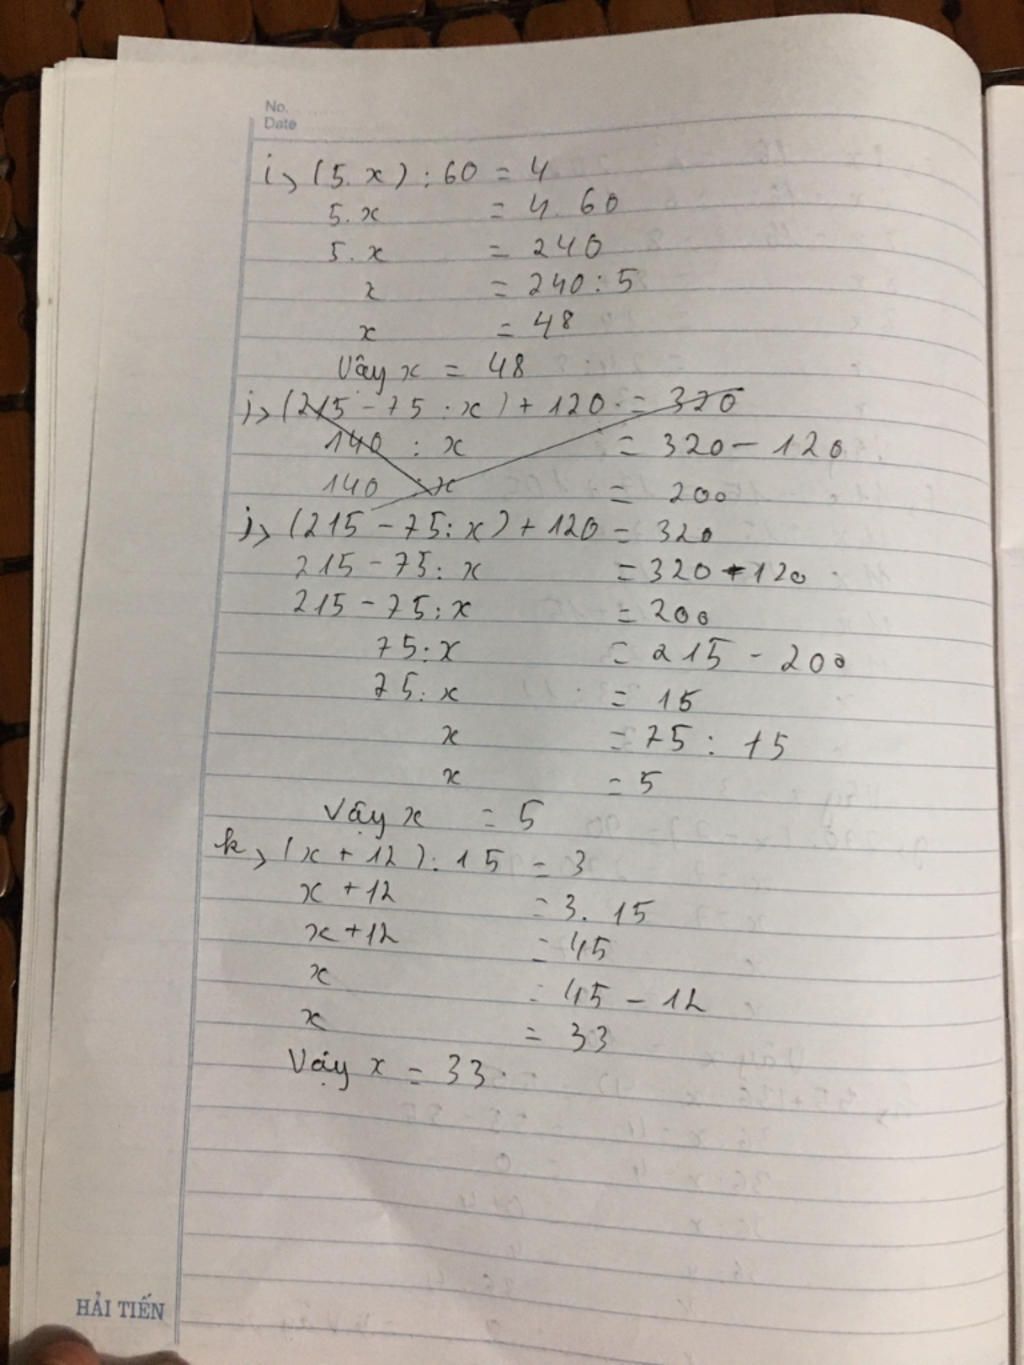 No.
Date
i, (5.x) : 60 = 4
5.x = 4.60
5.x = 240
x = 240 : 5
x = 48
Vậy x = 48
j, (215 - 75 : x) + 120 = 320
140 : x = 320 - 120
140 : x = 200
j, (215 - 75 : x) + 120 = 320
215 - 75 : x = 320 - 120
215 - 75 : x = 200
75 : x = 215 - 200
75 : x = 15
x = 75 : 15
x = 5
Vậy x = 5
k, (x + 12) : 15 = 3
x + 12 = 3.15
x + 12 = 45
x = 45 - 12
x = 33
Vậy x = 33
HẢI TIẾN